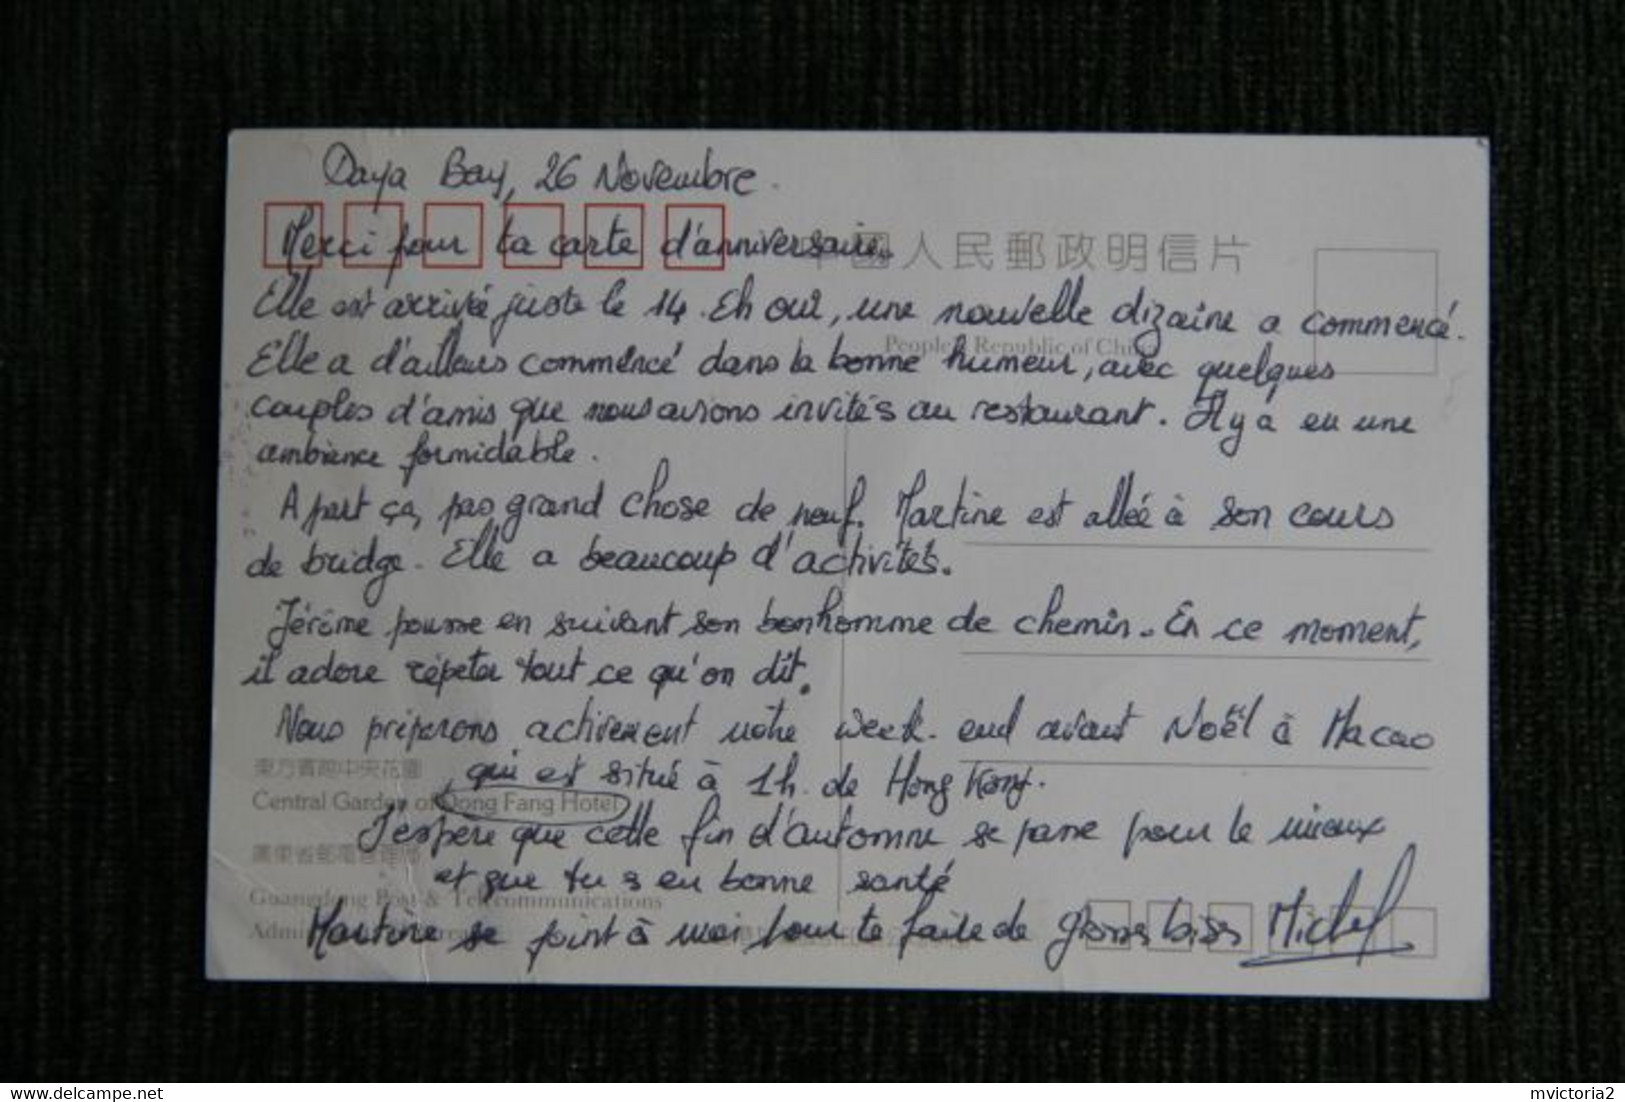 Daya Bay, 26 Novembre.
Merci pour ta carte d'anniversaire.
中國人民郵政明信片
Elle est arrivée juste le 14. Eh oui, une nouvelle dizaine a commencé.
People's Republic of China
Elle a d'ailleurs commencé dans la bonne humeur, avec quelques
couples d'amis que nous avions invités au restaurant. Il y a eu une
ambiance formidable.
A part ça, pas grand chose de neuf. Martine est allée à son cours
de bridge. Elle a beaucoup d'activités.
Jérôme pousse en suivant son bonhomme de chemin. En ce moment,
il adore répéter tout ce qu'on dit.
Nous préparons activement notre week-end avant Noël à Macao
東方賓館中央花園
qui est situé à 1h. de Hong Kong.
Central Garden of Dong Fang Hotel
J'espère que cette fin d'automne se passe pour le mieux
廣東省郵電管理局
et que tu es en bonne santé
Guangdong Post & Telecommunications
Martine se joint à moi pour te faire de grosses bises Michel
mvictoria2